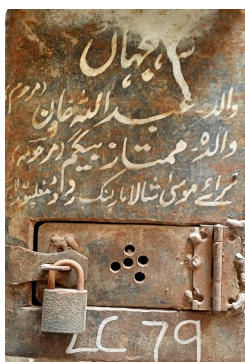 جہاں
والد عبداللہ خان (مرحوم)
والدہ ممتاز بیگم (مرحومہ)
برائے موسیٰ شالامار لنک روڈ مغلپورہ
LC 79